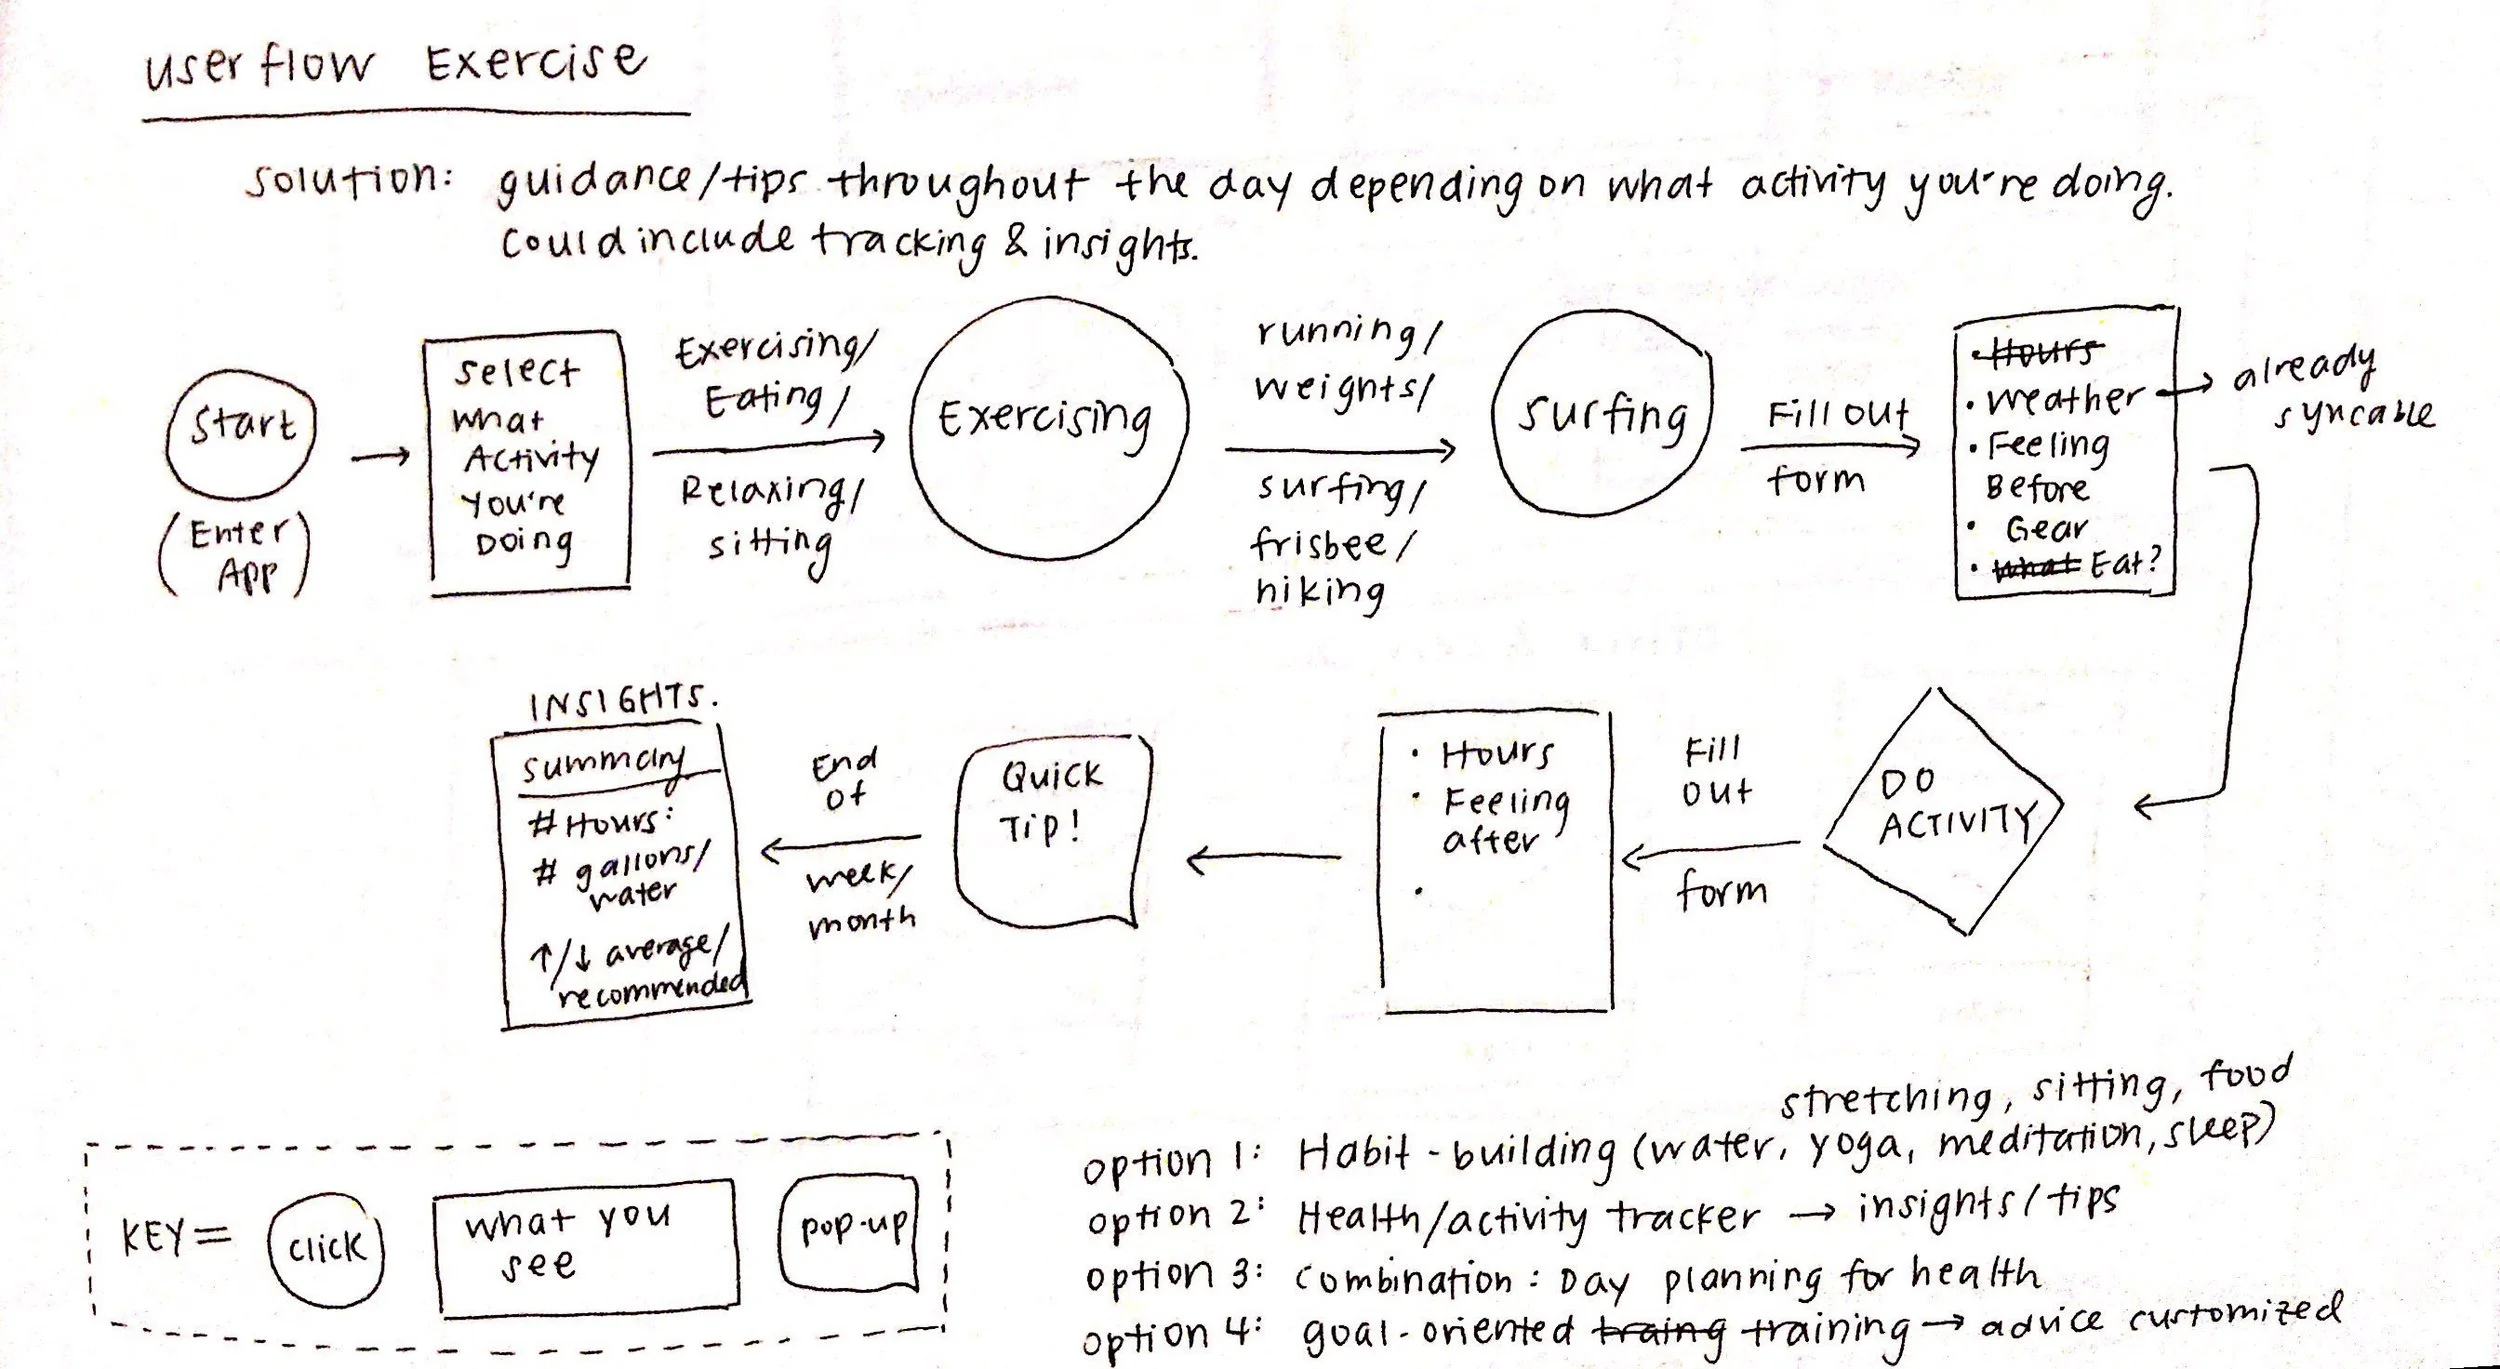 userflow Exercise
solution: guidance/tips throughout the day depending on what activity you're doing.
could include tracking & insights.
Start
(Enter
App)
select
what
Activity
you're
Doing
Exercising/
Eating/
Relaxing/
sitting
Exercising
running/
weights/
surfing/
frisbee/
hiking
surfing
Fill out
form
• Hours
• weather → already
syncable
• Feeling
Before
• Gear
• what Eat?
DO
ACTIVITY
Fill
out
form
• Hours
• Feeling
after
•
Quick
Tip!
End
of
week/
month
INSIGHTS.
summary
# Hours:
# gallons/
water
↑/↓ average/
recommended
KEY =
click
what you
see
pop-up
stretching, sitting, food
option 1: Habit-building (water, yoga, meditation, sleep)
option 2: Health/activity tracker → insights/tips
option 3: combination: Day planning for health
option 4: goal-oriented traing training → advice customized